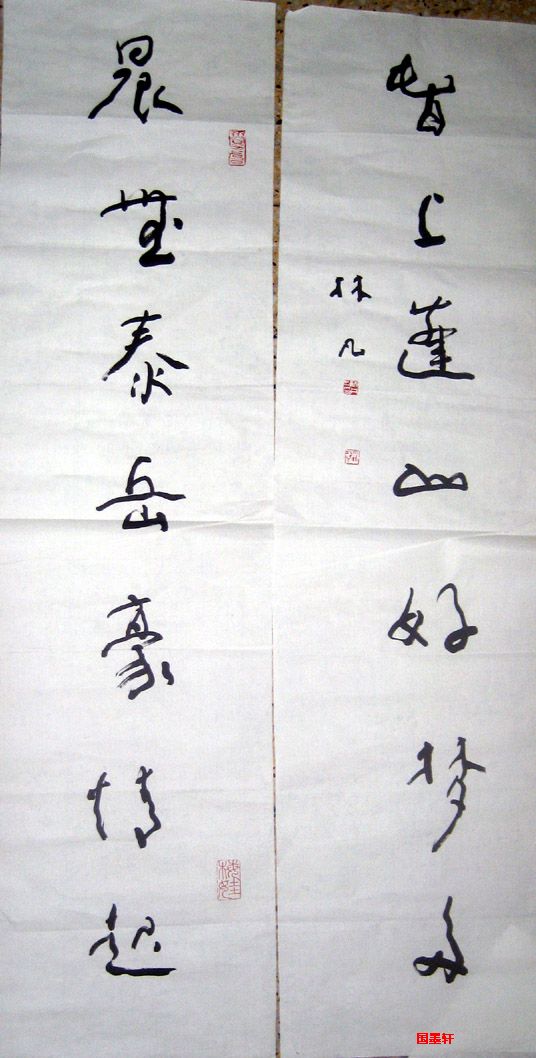 晨登泰岳豪情起
上蓬山好梦多
林凡
国墨轩